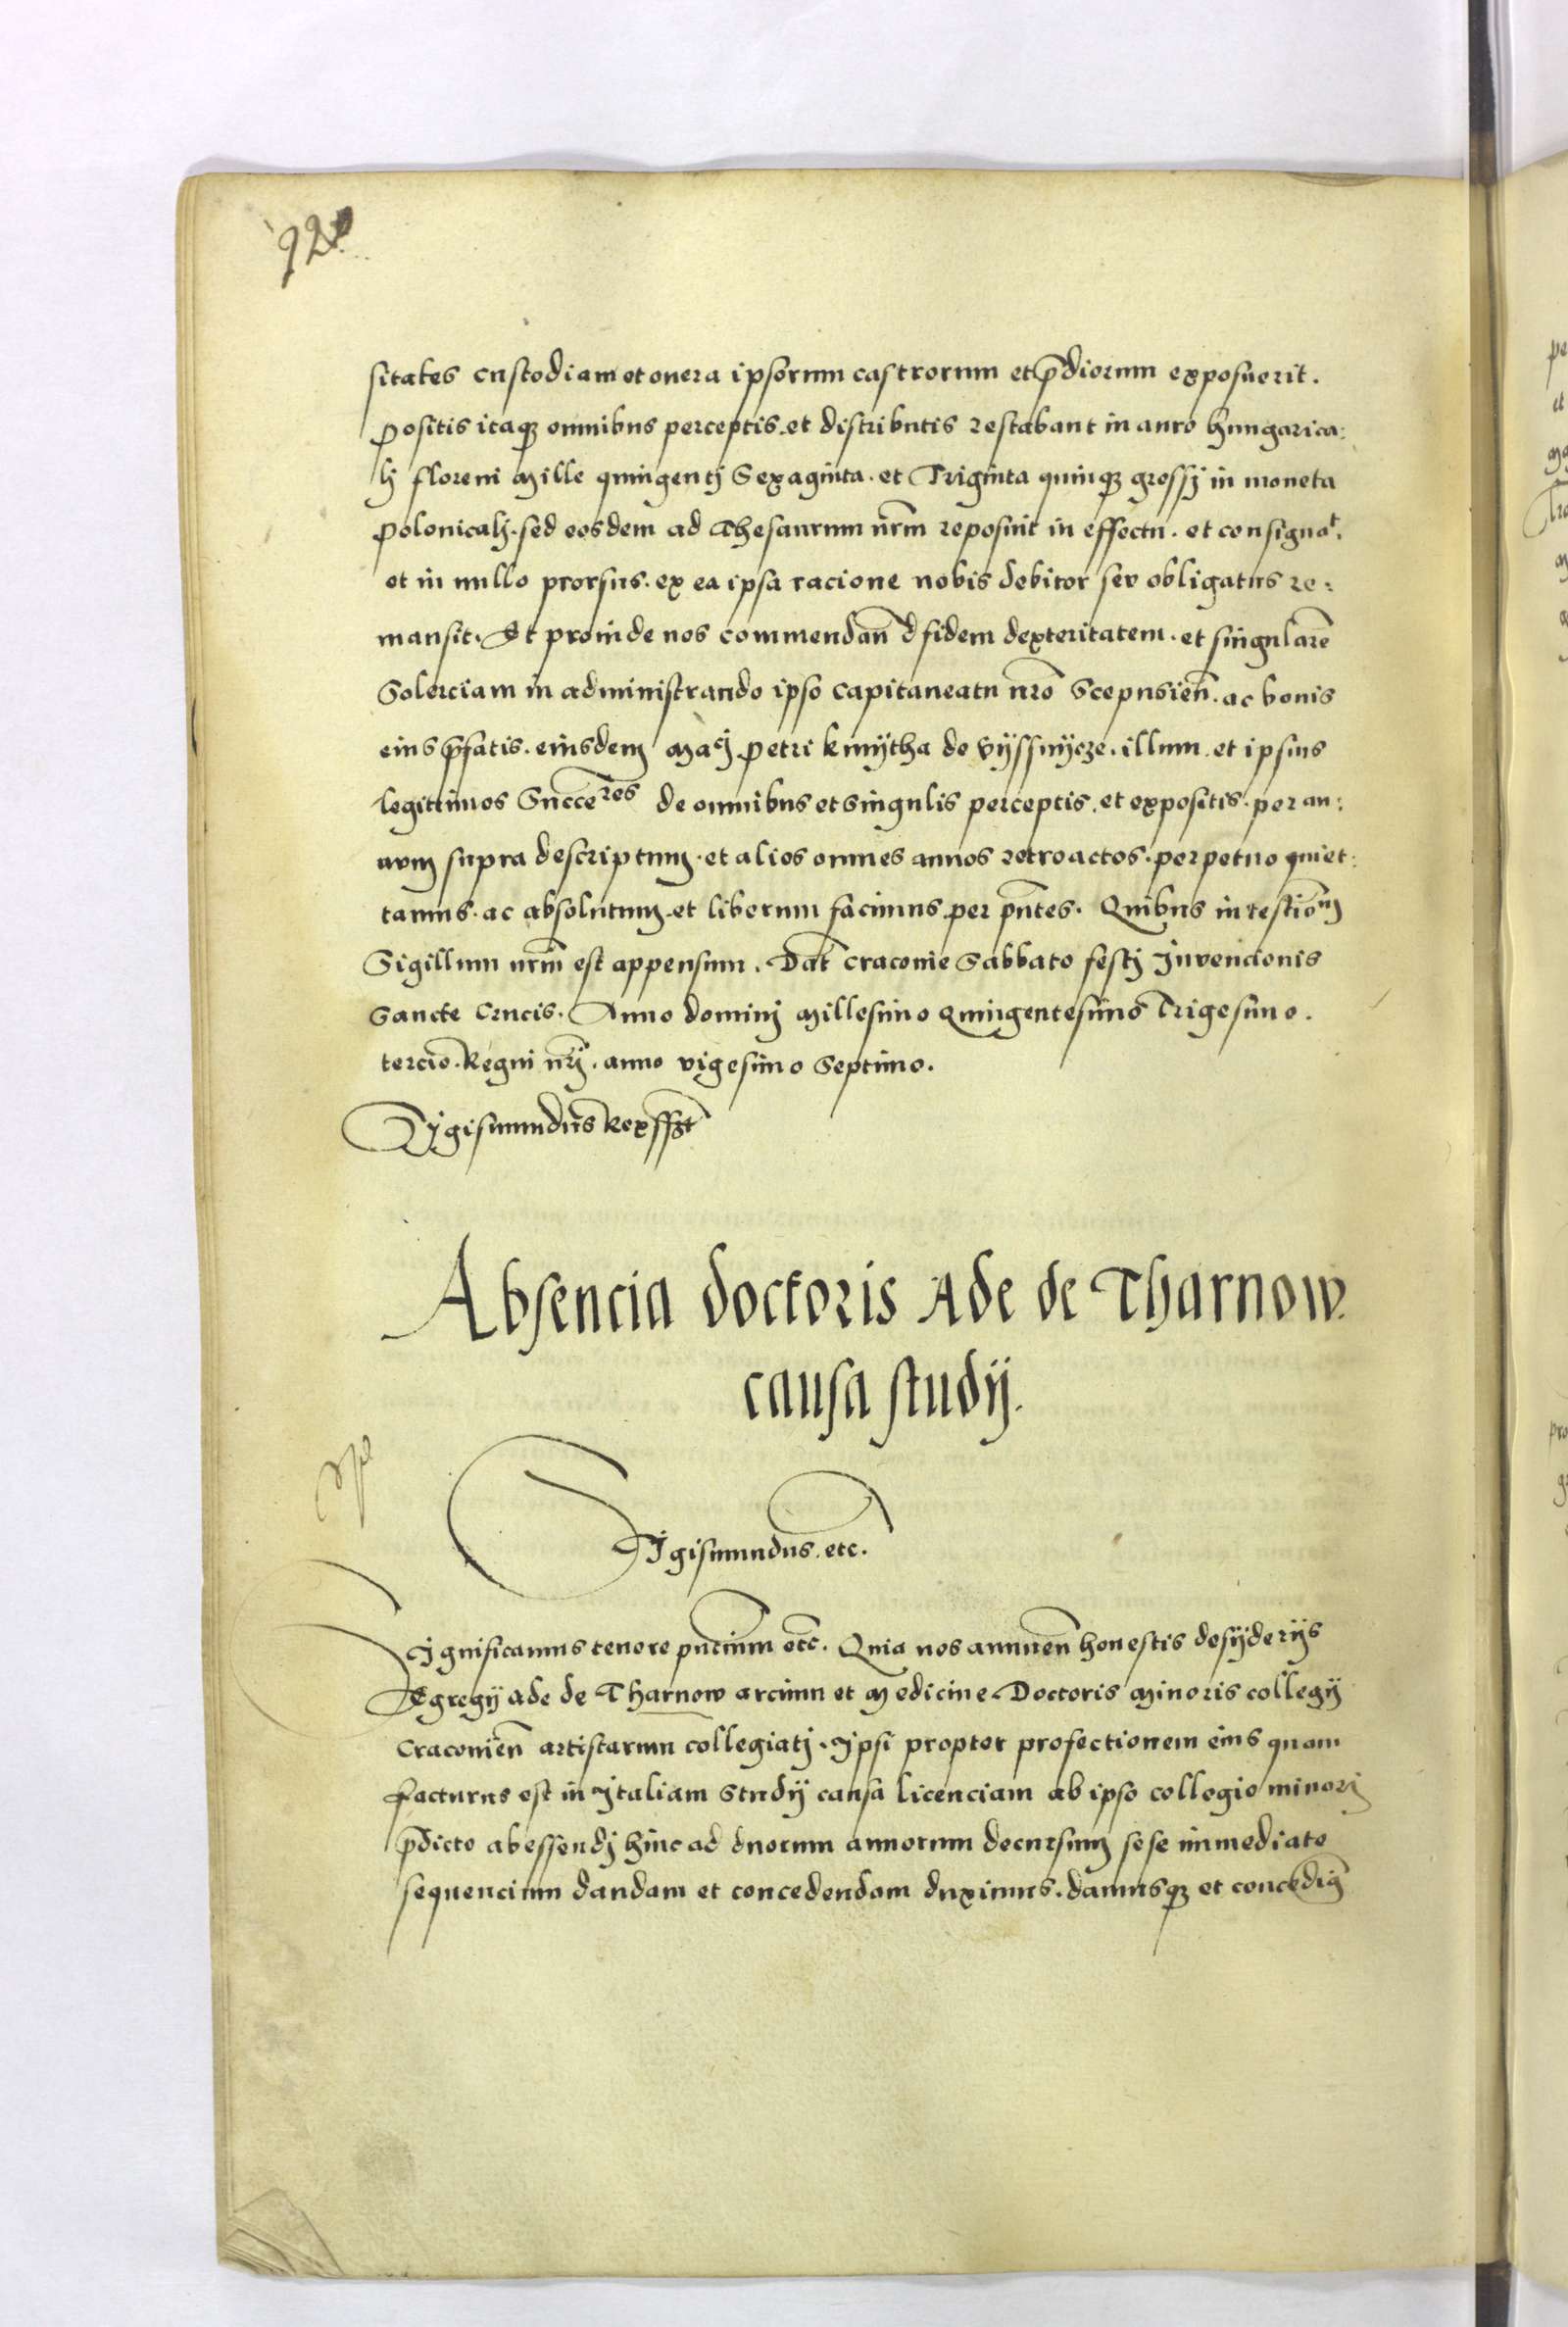 920
sitates custodiam et onera ipsorum castrorum et p̄diorum exposuerit.
Positis itaqꝫ omnibus perceptis et distributis restabant in auro hungarica:
lj floreni Mille quingentj Sexaginta. et Triginta quinqꝫ grossj in moneta
polonicalj. sed eosdem ad Thesaurum nr̄m reposuit in effectu. et consignat.
et in nullo prorsus. ex ea ipsa racione nobis debitor seu obligatus re:
mansit. Et proinde nos commendan̄ fidem dexteritatem. et singularē
Solerciam in administrando ipso Capitaneatu nr̄o Scepusien̄. ac bonis
eius p̄fatis. eiusdem Macj petri kmÿtha de Vÿssnÿcze. illum et ipsius
legittimos Succeres de omnibus et singulis perceptis. et expositis. per an:
num supra descriptum. et alios omnes annos retroactos. perpetuo quiet:
tamus. ac absolutum et liberum facimus per pn̄tes. Quibus in testiom
Sigillum nr̄m est appensum. Dat̄ Craconie Sabbato festj Invencionis
Sancte Crucis. Anno dominj Millesimo Quingentesimo Trigesimo.
tercio. Regni nr̄j. anno vigesimo Septimo.
Sigismundus Rex sszt
Absencia doctoris Ade de Tharnow.
causa studij.
Sigismundus. etc.
Significamus tenore pn̄cium etc̄. Quia nos annuen̄ honestis desÿderijs
Egregij Ade de Tharnow arcium et Medicine Doctoris Minoris collegij
Craconien̄ artistarum collegiatj. Ipsi propter profectionem eius quam
facturus est in Italiam Studij causa licenciam ab ipso collegio minorj
p̄dicto abessendj hinc ad duorum annorum decursum sese immediate
sequencium dandam et concedendam duximus. damusqꝫ et concedim̄